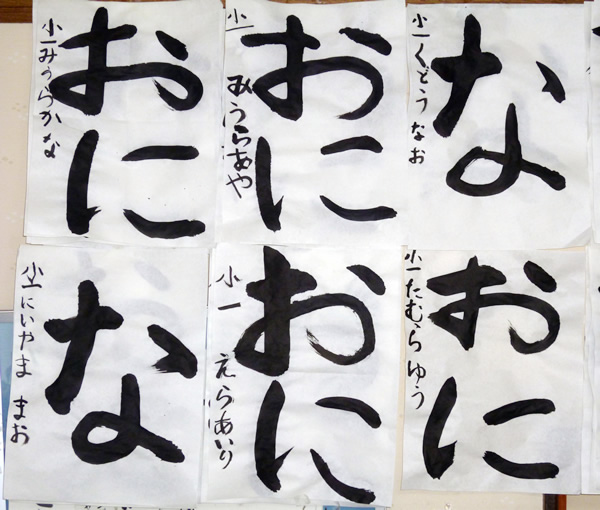 おに
小一みうらかな
おに
小一
みうらあや
な
小一くどうなお
な
小一にいやま まお
おに
小一 えらあいり
おに
小一たむらゆう